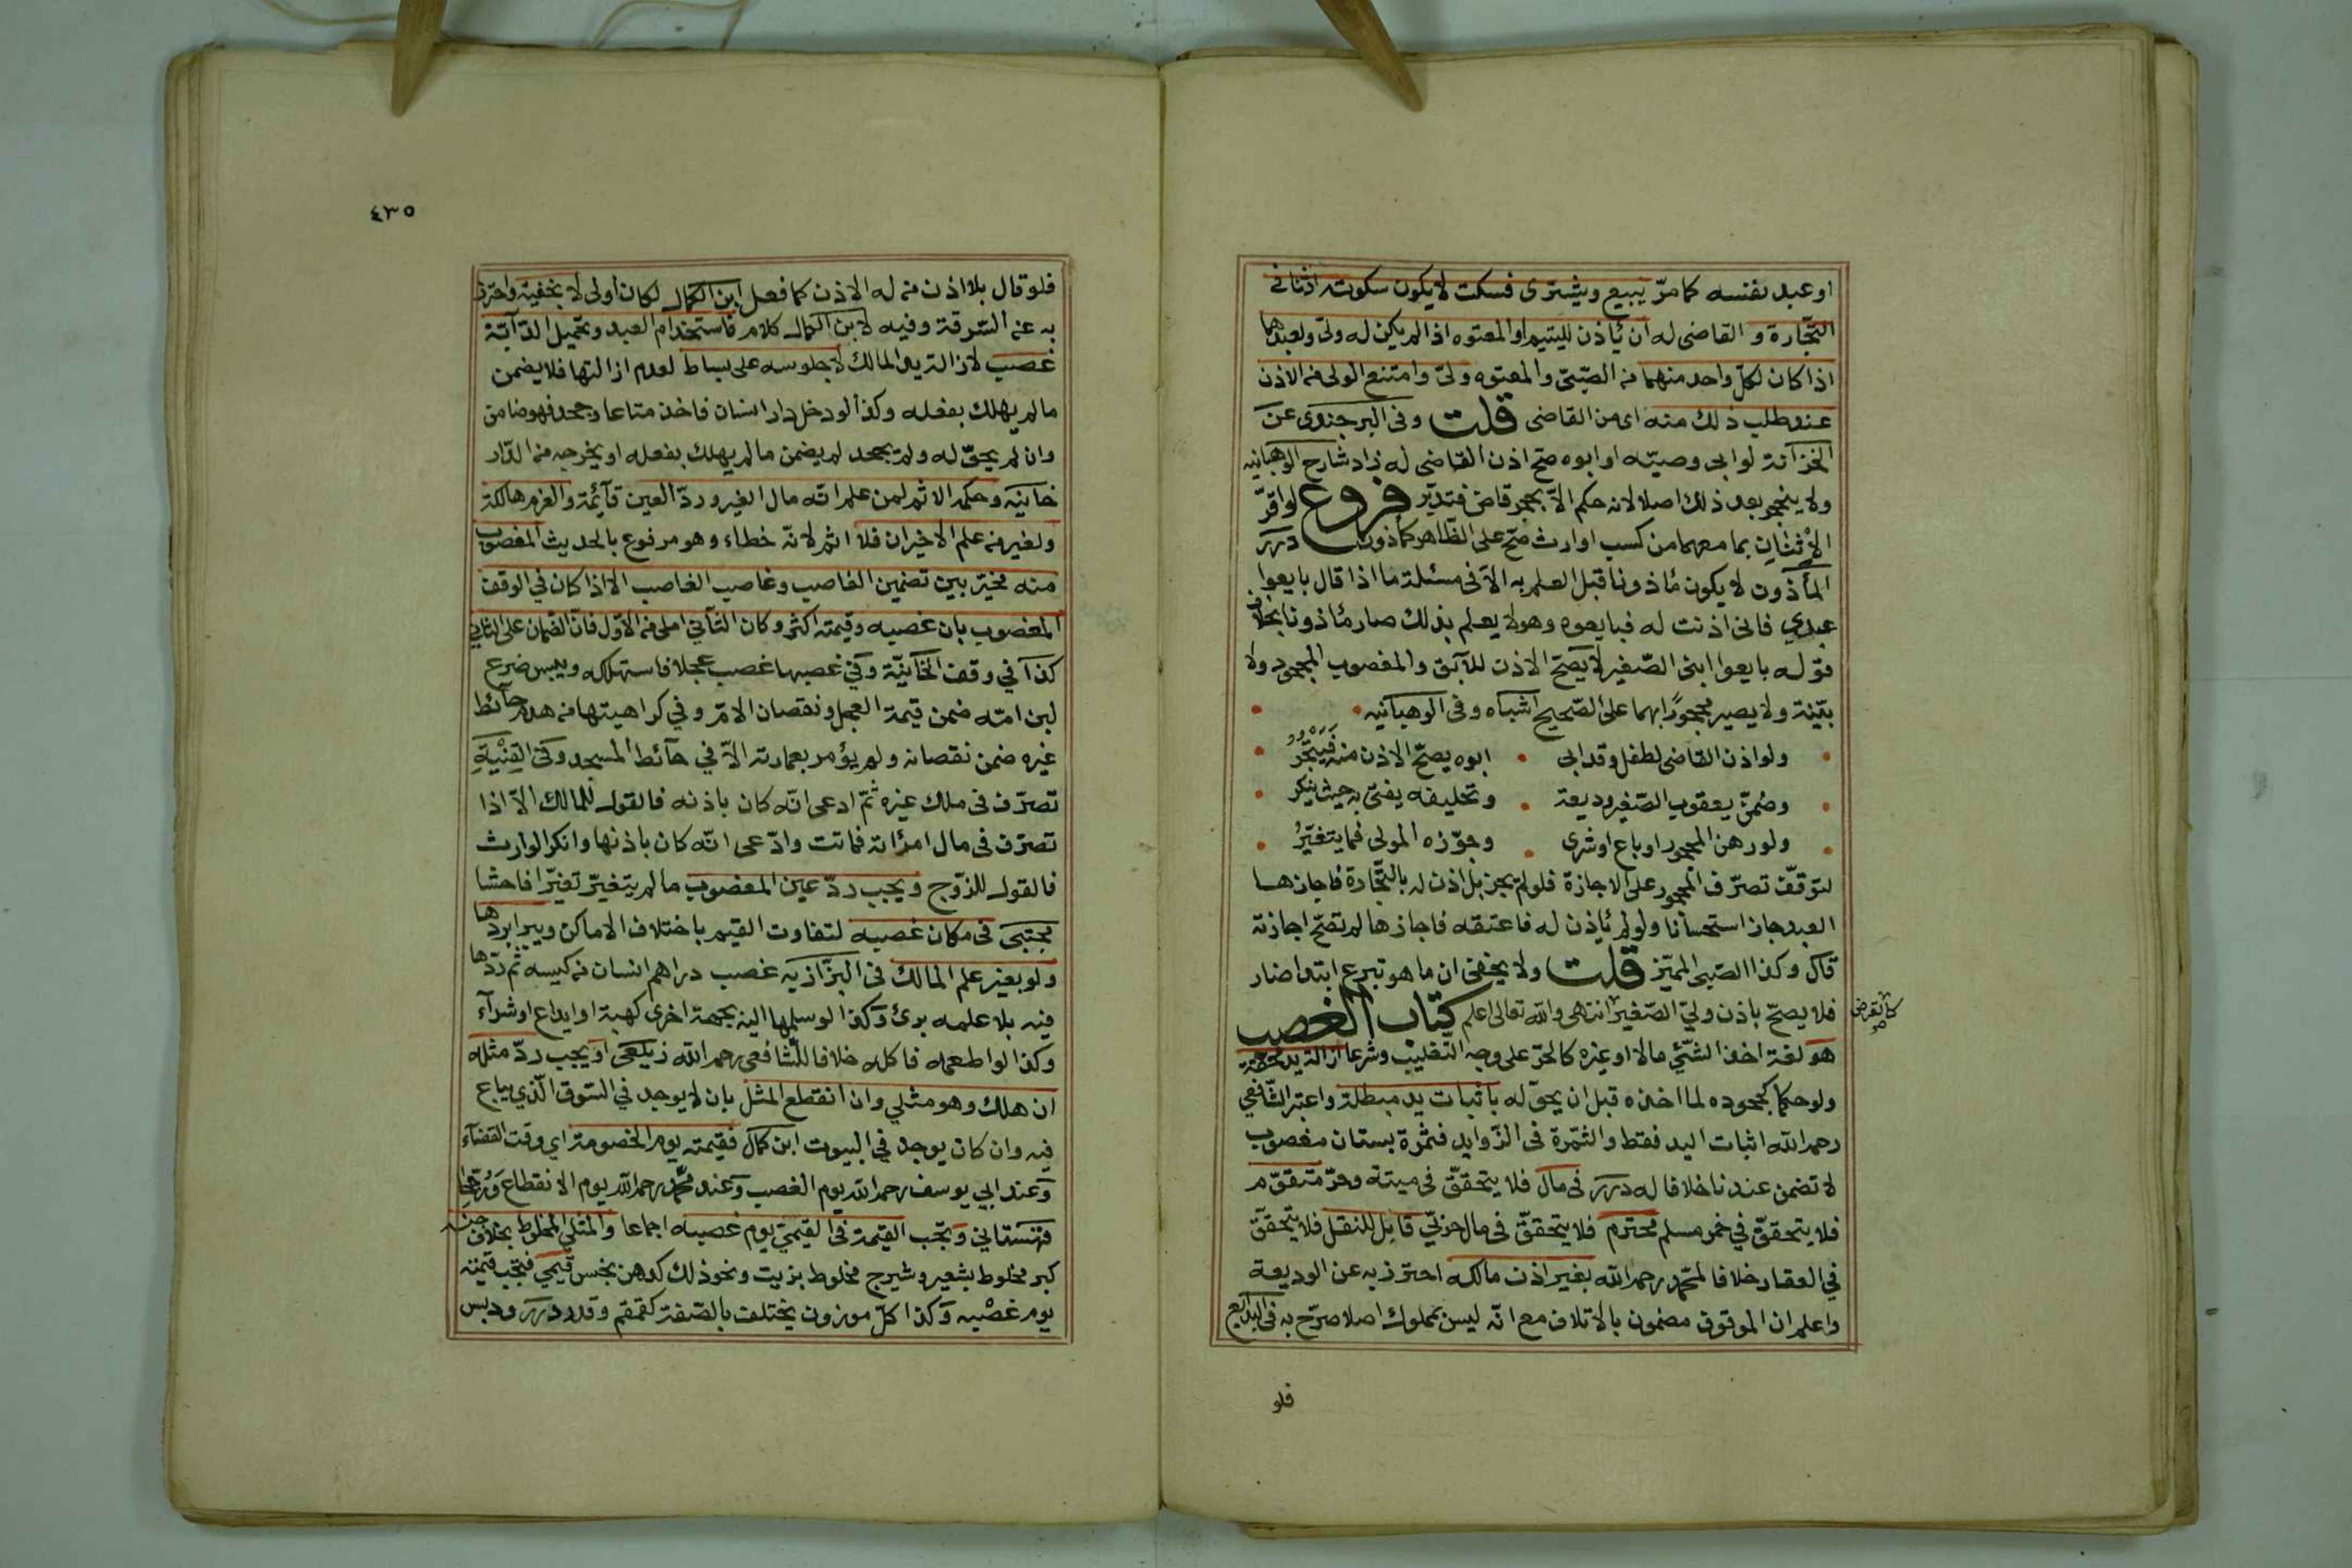 او عبد نفسه كما مرّ يبيع ويشترى فسكت لا يكون سكوته اذنا في
التجّارة و القاضى له ان يأذن لليتيم والمعتوه اذا لم يكن له ولىّ ولعبدهما
اذا كان لكلّ واحد منهما من الصّبىّ والمعتوه ولىّ وامتنع الولى من الاذن
عند طلب ذلك منه اى من القاضى قلت وفى البرجندى عن
الخزانة لو ابى وصيّه او ابوه صحّ اذن القاضى له زاد شارح الوهبانيه
ولا ينحجر بعد ذلك اصلا لانه حكم الاّ بحجر قاض فتدبّر فروع لو اقرّ
الانسان بما معهما من كسب او ارث صحّ على الظّاهر كمأذون درر
المأذون لا يكون مأذونا قبل العلم به الاّ فى مسئلة ما اذا قال بايعوا
عبدي فانى اذنت له فبايعوه وهو لا يعلم بذلك صار مأذونا بخلاف
قوله بايعوا ابنى الصّغير لا يصحّ الاذن للآبق والمغصوب المجحود ولا
بيّنة ولا يصير محجورًا بهما على الصّحيح اشباه وفى الوهبانيه
ولو اذن القاضى لطفل وقد ابى ابوه يصحّ الاذن منه فَيَتْجُرُ
وضمّن يعقوب الصّغير وديعة وتحليفه يفتى به حيث ينكر
ولو رهن المحجور او باع او شرى وجوّزه المولى فما يتغيّرُ
لتوقّف تصرّف المحجور على الاجازة فلو لم يجز بل اذن له بالتجّارة فاجازها
العبد جاز استحسانا ولو لم يأذن له فاعتقه فاجازها لم تصحّ اجازته
قال وكذا الصّبى المميّز قلت ولا يخفى ان ما هو تبرع ابتداء ضار
فلا يصحّ باذن وليّ الصّغير انتهى والله تعالى اعلم كتاب الغصب
كالقرض صح
هو لغة اخذ الشّئ مالا او غيره كالحرّ على وجه التّغليب وشرعا ازالة يد محقة
ولو حكما كجحوده لما اخذه قبل ان يحوّله باثبات يد مبطلة واعتبر الشّافعي
رحمه الله اثبات اليد فقط والثمّرة فى الزّوايد فثمرة بستان مغصوب
لا تضمن عندنا خلافا له درر فى مال فلا يتحققّ فى ميتة وحرّ متقوّم
فلا يتحققّ في خمر مسلم محترم فلا يتحققّ فى مال حربيّ قابل للنقل فلا يتحققّ
في العقار خلافا لمحّمد رحمه الله بغير اذن مالكه احترز به عن الوديعة
واعلم ان الموقوف مضمون بالاتلاف مع انّه ليس بمملوك اصلا صرّح به فى البدايع
فلو
٤٣٥
فلو قال بلا اذن من له الاذن كما فعل ابن الكمال لكان أولى لا بخفية واحترز
به عن السّرقة وفيه لابن الكمال كلام فاستخدام العبد وتحميل الدّآبّة
غصب لازالة يد المالك لا جلوسه على بساط لعدم ازالتها فلا يضمن
ما لم يهلك بفعله وكذا لو دخل دار انسان فاخذ متاعا وجحد فهو ضامن
وان لم يحوّله ولم يجحد لم يضمن ما لم يهلك بفعله او يخرجه من الدّار
خانية وحكمه الاثم لمن علم انّه مال الغير وردّ العين قآئمة والغرم هالكة
ولغير من علم الاخيران فلا اثم لانّه خطاء وهو مرفوع بالحديث المغصوب
منه مخيّر بين تضمين الغاصب وغاصب الغاصب الا اذا كان في الوقف
المغصوب بان غصبه وقيمته اكثر وكان الثّاني املى من الاوّل فانّ الضمان على الثاني
كذا في وقف الخانيّة وفي غصبها غصب عجلا فاستهلكه ويبس ضرع
لبن امّه ضمن قيمة العجل ونقصان الامّ وفي كراهيتها من هدم حآئط
غيره ضمن نقصانه ولم يؤمر بعمارته الاّ في حآئط المسجد وفى القِنْيَةِ
تصرّف فى ملك غيره ثمّ ادعى انّه كان باذنه فالقول للمالك الاّ اذا
تصرّف فى مال امرأته فماتت وادّعى انّه كان باذنها وانكر الوارث
فالقول للزوّج ويجب ردّ عين المغصوب ما لم يتغيّر تغيّرا فاحشا
مجتبى فى مكان غصبه لتفاوت القيم باختلاف الاماكن ويبرا بردّها
ولو بغير علم المالك فى البزّازيه غصب دراهم انسان من كيسه ثم ردّها
فيه بلا علمه برئ وكذا لو سلمها اليه بجهة اخرى كهبة او ايداع او شرآء
وكذا لو اطعمه فاكله خلافا للشّافعى رحمه الله زيلعى او يجب ردّ مثله
ان هلك وهو مثلي وان انقطع المثل بان لا يوجد في السّوق الّذي يباع
فيه وان كان يوجد في البيوت ابن كمال فقيمته يوم الخصومة اي وقت القضآء
وعند ابي يوسف رحمه الله يوم الغصب وعند محّمد رحمه الله يوم الانقطاع ورُجحا
قهستاني وتجب القيمة فى القيمي يوم غصبه اجماعا والمثلي المخلوط بخلاف جنسه
كبر مخلوط بشعير وشيرج مخلوط بزيت ونحو ذلك كدهن نجس قيمي فتجب قيمته
يوم غصبه وكذا كلّ موزون يختلف بالصّفة كقمقم وقدر درر ودبس